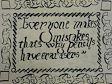 Everyone makes
mistakes,
that's why pencils
have erasers"